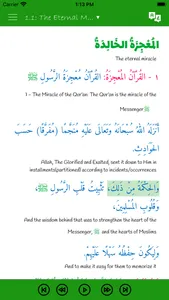 1:15 PM
1.1: The Eternal M...
المُعْجِزَةُ الخَالِدَةُ
The eternal miracle
١ - القُرْآنُ المُعْجِزَةُ: القُرْآنُ مُعْجِزَةُ الرَّسُولِ ﷺ
1 - The Miracle of the Qur'an: The Qur'an is the miracle of the
Messenger ﷺ
أَنْزَلَهُ اللَّهُ سُبْحَانَهُ وَتَعَالَى عَلَيْهِ مُنَجَّمًا (مُفَرَّقًا) حَسَبَ
الحَوَادِثِ.
Allah, The Glorified and Exalted, sent it down to Him in
installments(partitioned) according to incidents/occurrences
وَالحِكْمَةُ مِنْ ذَلِكَ، تَثْبِيتُ قَلْبِ الرَّسُولِ ﷺ،
وَقُلُوبِ المُسْلِمِينَ،
And the wisdom behind that was to strengthen the heart of the
Messenger, ﷺ and the hearts of Muslims
وَلِيَكُونَ حِفْظُهُ سَهْلًا عَلَيْهِمْ.
And to make it easy for them to memorize it